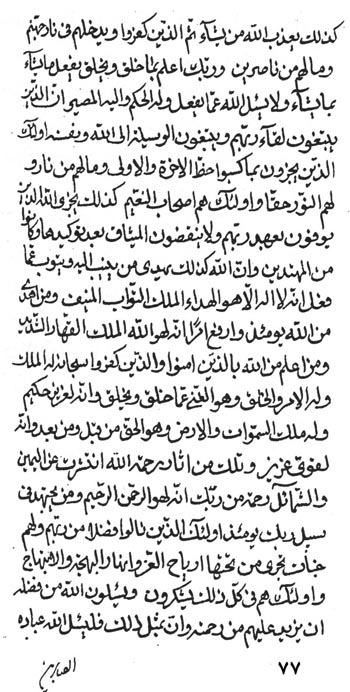 كذلك يعذب الله من يشاء ثم الذين كفروا ويدخلهم في نار جهنم
وما لهم من ناصرين وربك اعلم بما خلق ويخلق يفعل ما يشاء
بما يشاء ولا يسئل الله عما يفعل وله الحكم واليه المصير ان الذين
يبتغون لقاء ربهم ويبتغون الوسيلة الى الله ونفسه اولئك
الذين يجزون بما كسبوا حظ الاخرة والاولى وما لهم من نار و
لهم النور حقا واولئك هم اصحاب النعيم كذلك يجزى الله الذين
يوفون بعهد ربهم ولا ينقضون الميثاق بعد توكيدها وكانوا
من المهتدين وان الله كذلك يهدى من ينيب اليه ويتوب عما
فعل انه لا اله الا هو الهداء الملك التواب المنيف ومن اهدى
من الله يومئذ وارفع امرا انه لهو الله الملك القهار الشديد
ومن اعلم من الله بالذين امنوا والذين كفروا سبحانه له الملك
وله الامر والخلق وهو الغني عما خلق ويخلق وانه لعزيز حكيم
وله ملك السموات والارض وهو الحق من قبل ومن بعد وانه
لقوى عزيز وتلك من اثار رحمة الله انتشرت عن اليمين
والشمائل رحمة من ربك انه لهو الرحمن الرحيم ومن يجتهد في
سبل ربك يومئذ اولئك الذين نالوا فضلا من ربهم ولهم
جنات تجري من تحتها ارياح العز وانهار البهجة والابتهاج
واولئك هم في كل ذلك يشكرون ويسئلون الله من فضله
ان يزيد عليهم من رحمته وان بمثل ذلك فليسئل الله عباده
الصابرين
٧٧